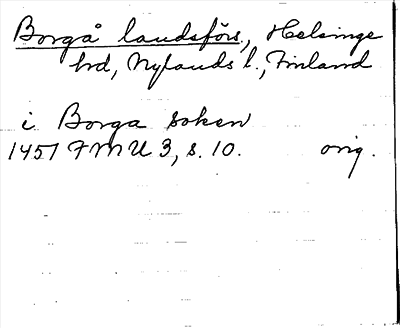 Borgå landsförs., Helsinge
hd, Nylands l., Finland
i Borga soken
1451 FMU 3, s. 10. orig.